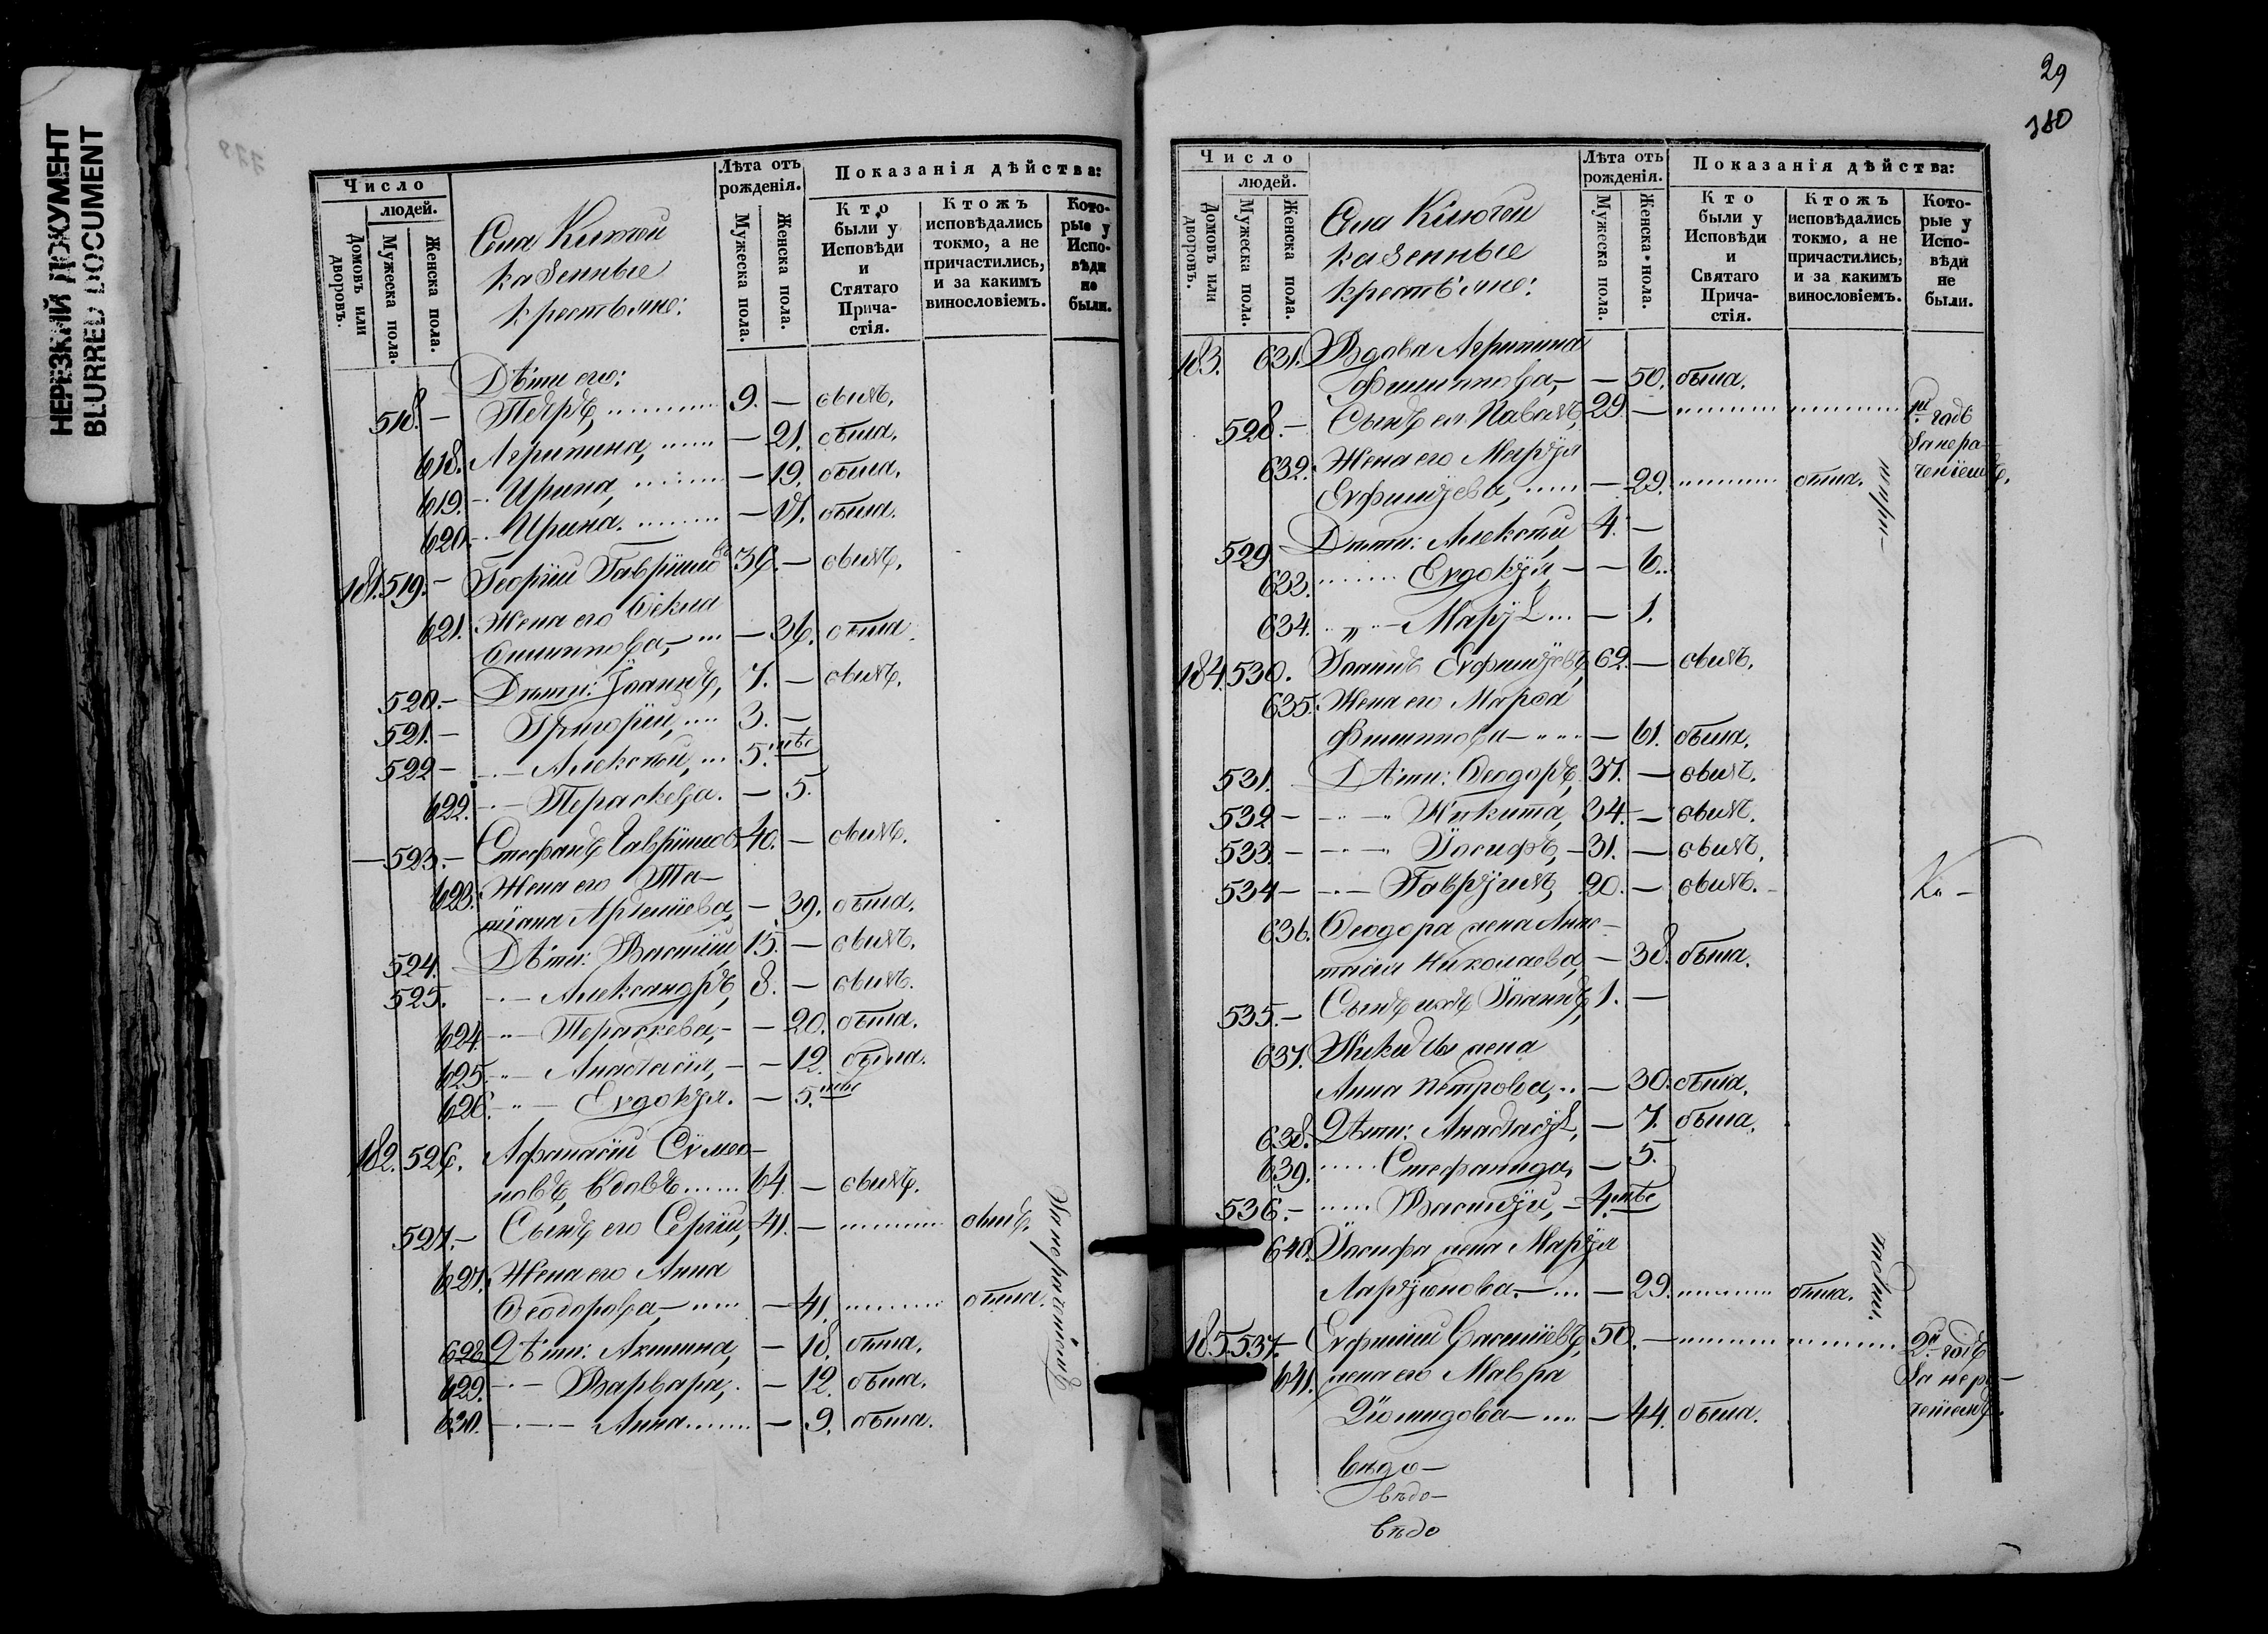 НЕРЕЗКИЙ ДОКУМЕНТ
BLURRED DOCUMENT
Число
людей.
Домовъ или дворовъ.
Мужеска пола.
Женска пола.
Села
казенные
крестьяне:
Лѣта отъ рожденія.
Мужеска пола.
Женска пола.
Показанія дѣйства:
Кто были у Исповѣди и Стятаго Прича-стія.
Ктожъ исповѣдались токмо, а не причастились, и за какимъ винословіемъ.
Кото-рые у Испо-вѣди не были.
Дѣти его:
518. – Петръ, 9. – былъ.
618. Агрипина, – 21. была.
619. Ирина, – 19. была.
620. Ирина. – была.
181. 519. – Георгій Гавріиловъ 36. – былъ.
621. Жена его Ѳекла
– 36. была.
520. – Дѣти: Іоаннъ, 7. – былъ.
521. – Григорій, 3. –
522 – Алексѣй, 5. мѣс
622. Параскева. – 5.
– 523. – Стефанъ Гавріиловъ 40. – былъ.
623. Жена его Та–
тіана Артеміева, – 39. была.
524. Дѣти: Василій 15. – былъ.
525. Александръ, 8. – былъ.
624. Параскева, – 20. была.
625. Анастасія, – 12. была.
626. Евдокія. – 5. мѣс
182. 526. Афанасій Сѵмео–
новъ, вдовъ 64. – былъ.
527. – Сынъ его Сергій, 41. – былъ.
627. Жена его Анна
Ѳеодорова, – 41. была.
628. Дѣти: Акилина, – 18. была.
629. Варвара, – 12. была.
630. Анна – 9. была.
За нераченіемъ
29
380
Число
людей.
Домовъ или дворовъ.
Мужеска пола.
Женска пола.
Села
казенные
крестьяне:
Лѣта отъ рожденія.
Мужеска пола.
Женска пола.
Показанія дѣйства:
Кто были у Исповѣди и Святаго Прича-стія.
Ктожъ исповѣдались токмо, а не причастились, и за какимъ винословіемъ.
Кото-рые у Испо-вѣди не были.
183. 631. Вдова Агрипина
Филиппова, – 50. была.
528. – Сынъ ея Павелъ, 29. – 1й годъ
За нера–
ченіемъ.
632. Жена его Марія
Евфиміева, – 29. была. по при–
529 Дѣти: Алексѣй 4. –
633. Евдокія, – 6.
634. Марія – 1.
184. 530. Іоаннъ Евфиміевъ, 62. – былъ.
635. Жена его Марѳа
Филиппова – 61. была.
531. Дѣти: Ѳеодоръ, 37. – былъ.
532 – Никита, 34. – былъ.
533 – Іосифъ, – 31. – былъ.
534 – Гавріилъ, 20. – былъ.
636. Ѳеодора жена Анас–
тасія Николаева, – 38. была.
535. – Сынъ ихъ Іоаннъ, 1. –
637. Никиты жена
Анна Петрова, – 30. была.
638. Дѣти: Анастасія, – 7. была.
639. Стефанида, – 5.
536. – Василій, – 4. мѣс
640. Іосифа жена Марія
Ларіонова. – 29. была.
185. 537. – Евфимій Василіевъ, 50. – 2й годъ
За нера–
ченіемъ.
641. жена его Мавра
Діомидова – 44. была.
вѣдо–
вѣдо–
вѣдо